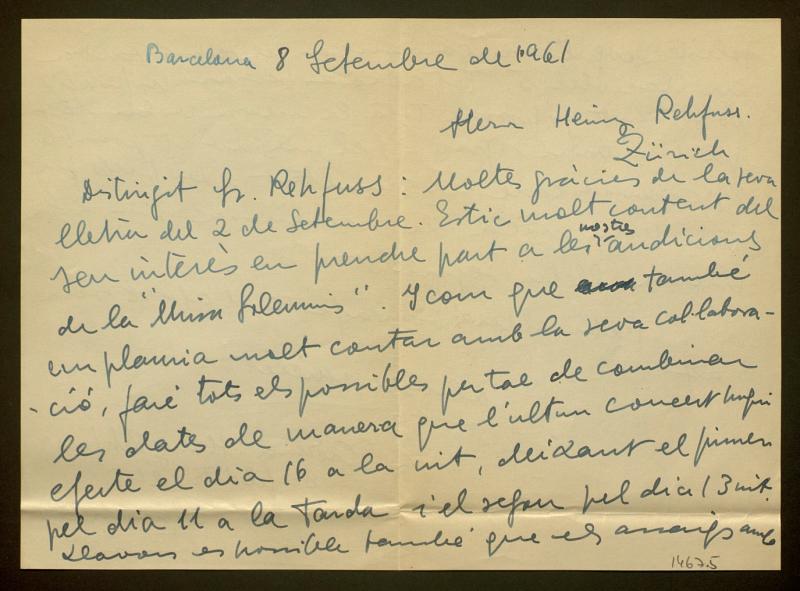 Barcelona 8 Setembre de 1961
Herrn Heinz Rehfuss.
Zürich
Distingit Sr. Rehfuss: Moltes gràcies de la seva
lletra del 2 de Setembre. Estic molt content del
seu interès en prendre part a les nostres audicions
de la "Missa Solemnis". I com que també
em plauria molt contar amb la seva col·labora-
-ció, faré tots els possibles per tal de combinar
les dates de manera que l'ultim concert tingui
efecte el dia 16 a la nit, deixant el primer
pel dia 11 a la tarda i el segon pel dia 13 nit.
Llavors es possible també que els assaigs amb
1467.5